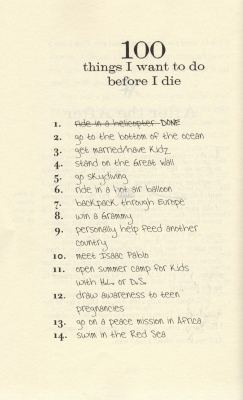 100
things I want to do
before I die
1. ride in a helicopter DONE
2. go to the bottom of the ocean
3. get married/have kidz
4. stand on the Great Wall
5. go skydiving
6. ride in a hot air balloon
7. backpack through Europe
8. win a Grammy
9. personally help feed another
country
10. meet Isaac Pablo
11. open summer camp for kids
with H.L. or D.S.
12. draw awareness to teen
pregnancies
13. go on a peace mission in Africa
14. swim in the Red Sea